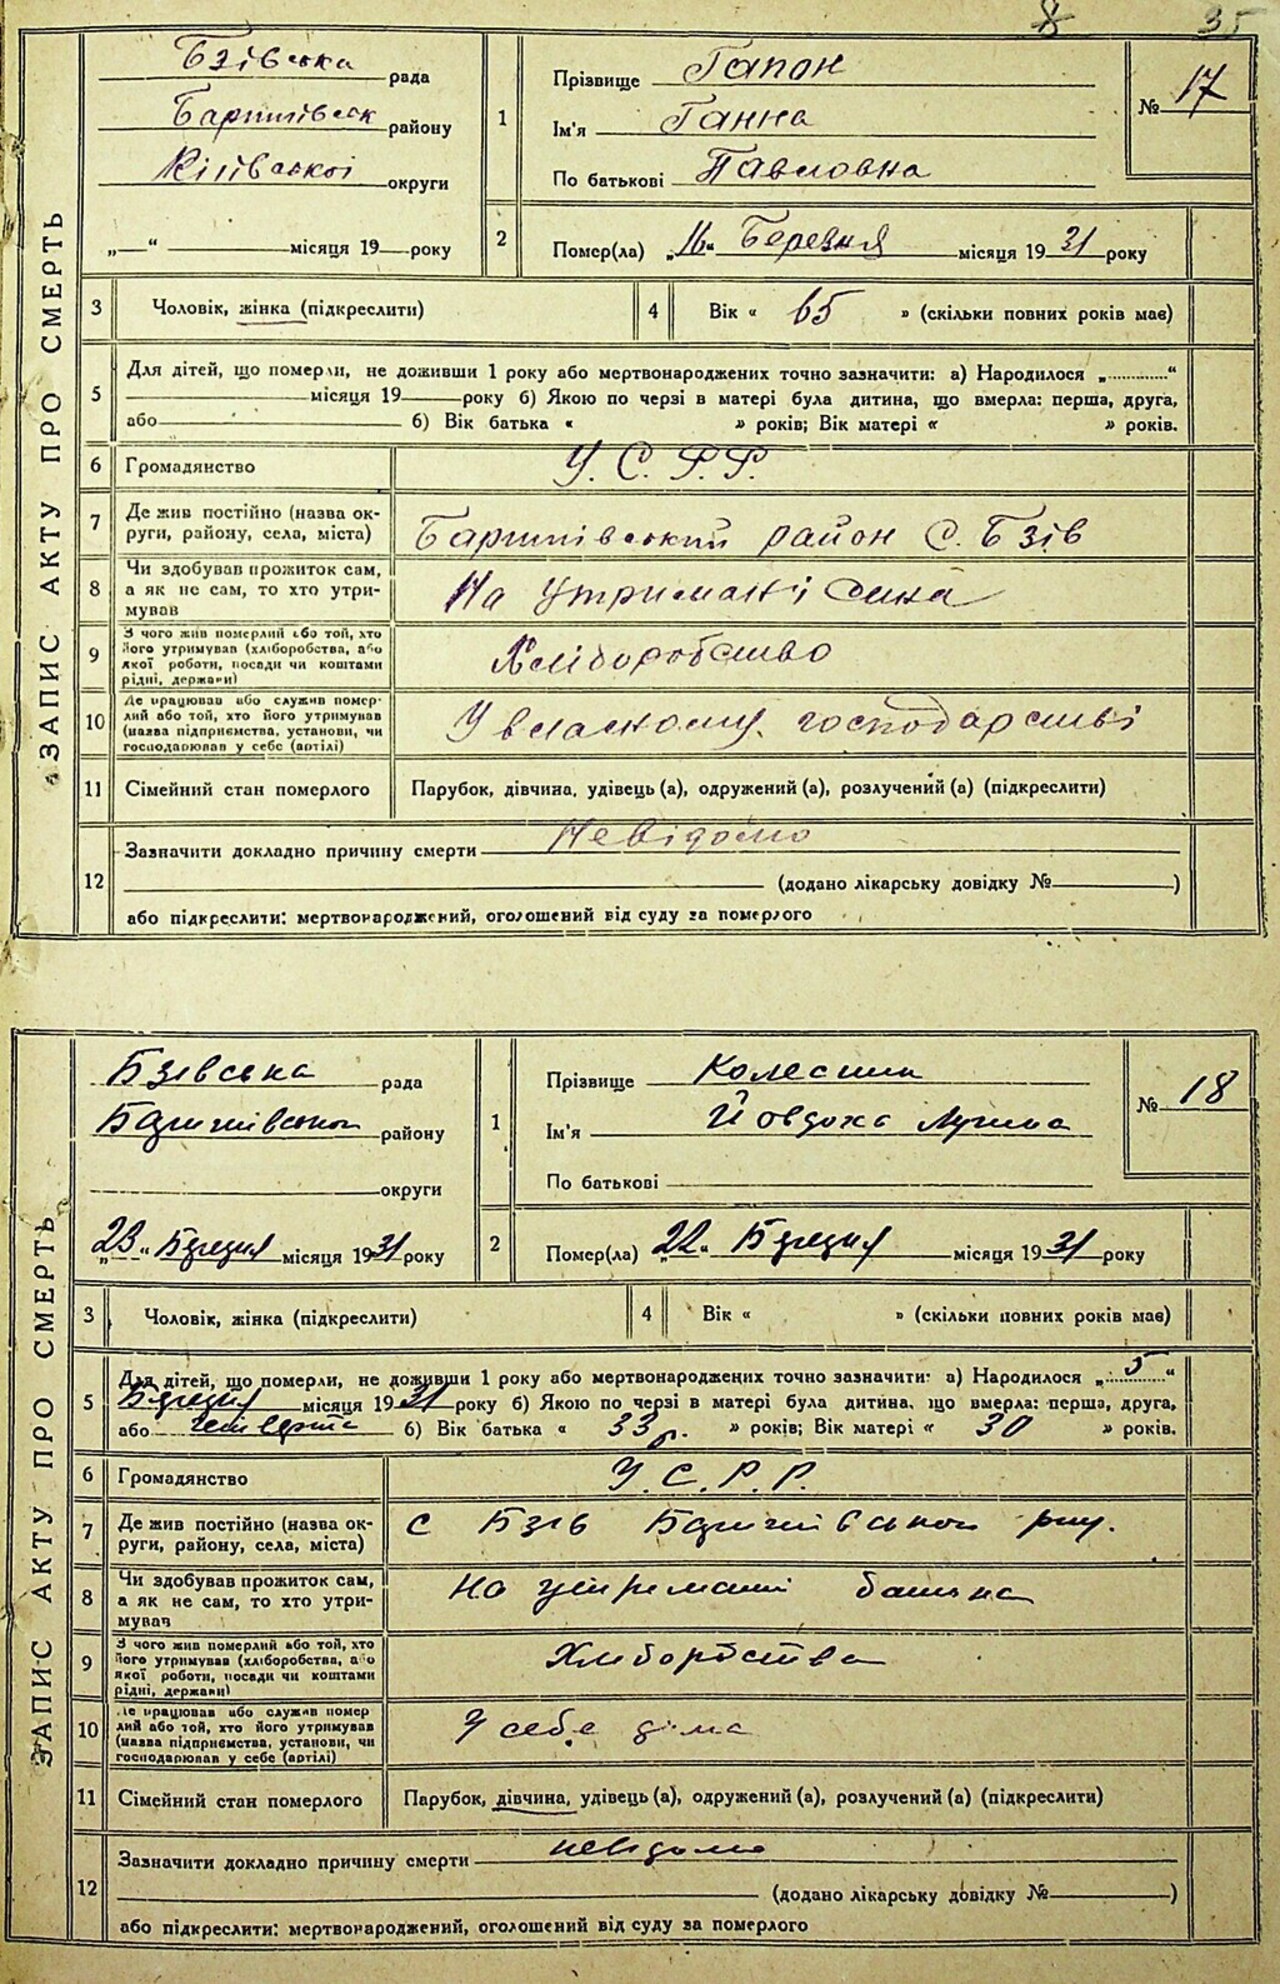 35
ЗАПИС АКТУ ПРО СМЕРТЬ
Бзівська рада
Баришівськ району
Київської округи
„ “ місяця 19 року
1
Прізвище Гапон
Ім'я Ганна
По батькові Павловна
№ 17
2
Помер(ла) „16“ Березня місяця 1931 року
3 Чоловік, жінка (підкреслити)
4 Вік « 65 » (скільки повних років має)
5 Для дітей, що померли, не доживши 1 року або мертвонароджених точно зазначити: а) Народилося „ “
місяця 19 року б) Якою по черзі в матері була дитина, що вмерла: перша, друга,
або б) Вік батька « » років; Вік матері « » років.
6 Громадянство У.С.Р.Р.
7 Де жив постійно (назва ок-
руги, району, села, міста) Баришівський район С. Бзів
8 Чи здобував прожиток сам,
а як не сам, то хто утри-
мував На утримані сина
9 З чого жив померлий або той, хто
його утримував (хліборобства, або
якої роботи, посади чи коштами
рідні, держави) Хліборобство
10 Де працював або служив помер-
лий або той, хто його утримував
(назва підприємства, установи, чи
господарював у себе (артілі) У власному господарстві
11 Сімейний стан померлого Парубок, дівчина, удівець (а), одружений (а), розлучений (а) (підкреслити)
12 Зазначити докладно причину смерти Невідомо
(додано лікарську довідку № )
або підкреслити: мертвонароджений, оголошений від суду за померлого
ЗАПИС АКТУ ПРО СМЕРТЬ
Бзівська рада
Баришівської району
округи
„23“ Березня місяця 1931 року
1
Прізвище Колесник
Ім'я Йовдоха
По батькові
№ 18
2
Помер(ла) „22“ Березня місяця 1931 року
3 Чоловік, жінка (підкреслити)
4 Вік « » (скільки повних років має)
5 Для дітей, що померли, не доживши 1 року або мертвонароджених точно зазначити: а) Народилося „5“
Березня місяця 1931 року б) Якою по черзі в матері була дитина, що вмерла: перша, друга,
або четверта б) Вік батька « 33 р. » років; Вік матері « 30 » років.
6 Громадянство У.С.Р.Р.
7 Де жив постійно (назва ок-
руги, району, села, міста) с Бзів Баришівської рну.
8 Чи здобував прожиток сам,
а як не сам, то хто утри-
мував На утриманні батька
9 З чого жив померлий або той, хто
його утримував (хліборобства, або
якої роботи, посади чи коштами
рідні, держави) Хліборобства
10 Де працював або служив помер-
лий або той, хто його утримував
(назва підприємства, установи, чи
господарював у себе (артілі) У себе дома
11 Сімейний стан померлого Парубок, дівчина, удівець (а), одружений (а), розлучений (а) (підкреслити)
12 Зазначити докладно причину смерти невідома
(додано лікарську довідку № )
або підкреслити: мертвонароджений, оголошений від суду за померлого